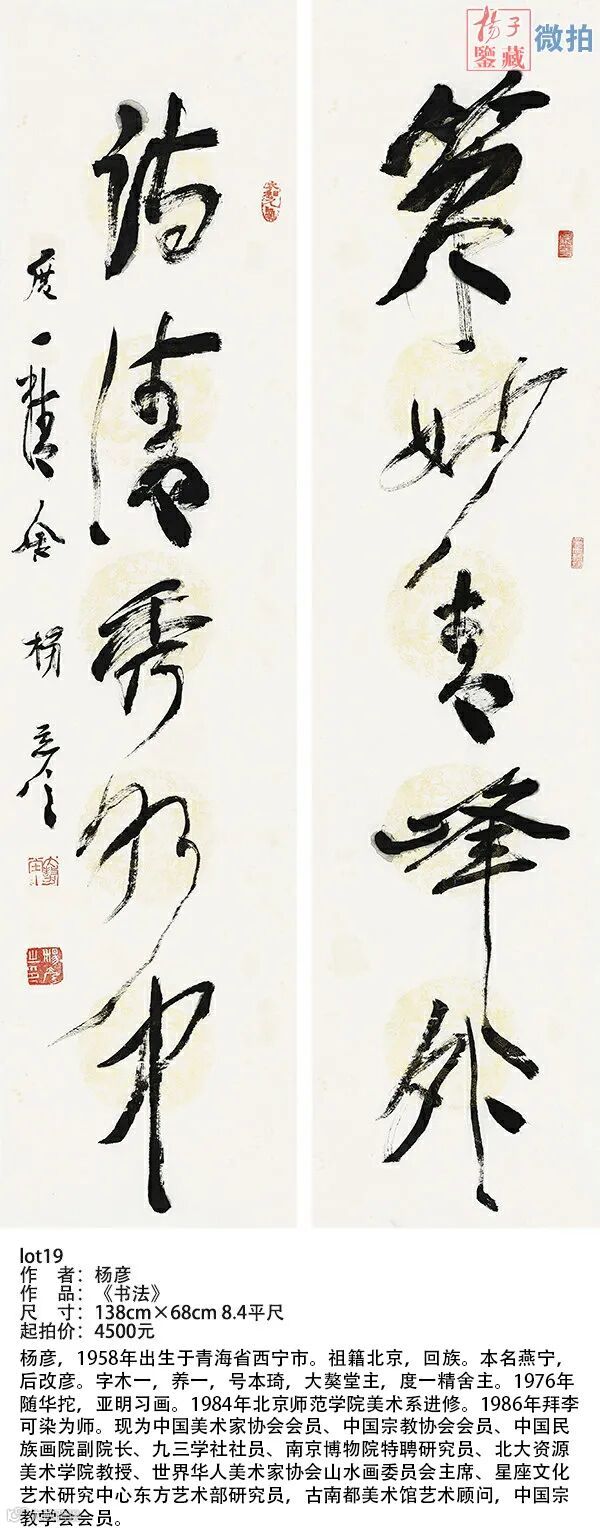 揚子
鑒藏
微拍
妙青峰外
诗清秀水中
度一精舍 楊彦
楊彦之印
lot19
作 者：杨彦
作 品：《书法》
尺 寸：138cm×68cm 8.4平尺
起拍价：4500元
杨彦，1958年出生于青海省西宁市。祖籍北京，回族。本名燕宁，
后改彦。字木一，养一，号本琦，大獒堂主，度一精舍主。1976年
随华拕，亚明习画。1984年北京师范学院美术系进修。1986年拜李
可染为师。现为中国美术家协会会员、中国宗教协会会员、中国民
族画院副院长、九三学社社员、南京博物院特聘研究员、北大资源
美术学院教授、世界华人美术家协会山水画委员会主席、星座文化
艺术研究中心东方艺术部研究员，古南都美术馆艺术顾问，中国宗
教学会会员。